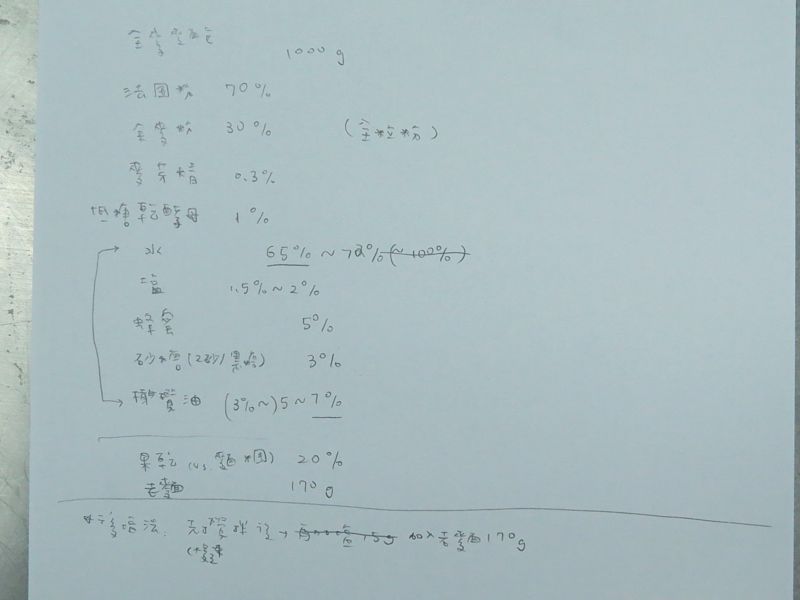 全麥麵包
1000 g
法國粉 70%
全麥粉 30% (全粒粉)
麥芽精 0.3%
低糖乾酵母 1%
水 65% ~ 72% (~100%)
塩 1.5% ~ 2%
蜂蜜 5%
砂糖 (2砂/黑糖) 3%
橄欖油 (3%~) 5 ~ 7%
果乾 (vs. 麵糰) 20%
老麵 170 g
後 → 加入老麵 170g